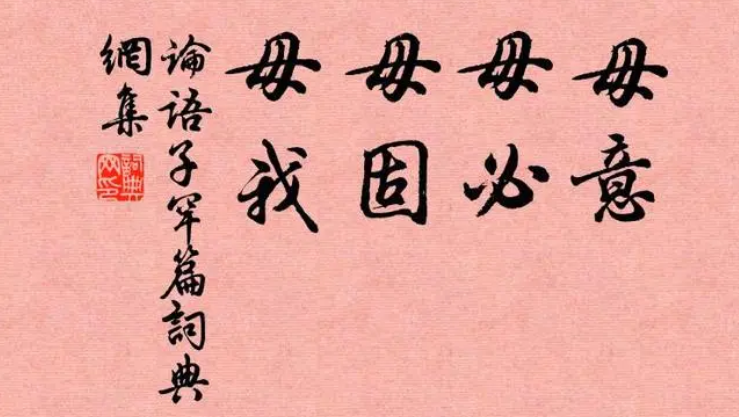 毋意
毋必
毋固
毋我
論語子罕篇詞典
網集
詞典
网印